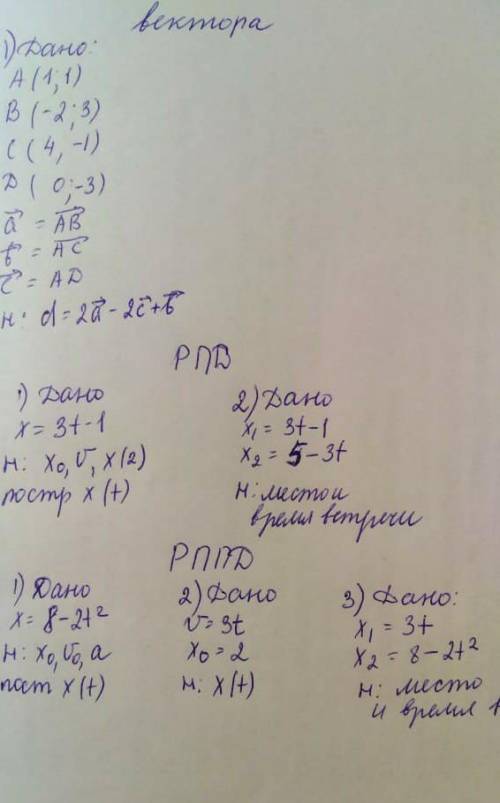 вектора
1) Дано:
A (1; 1)
B (-2; 3)
C (4, -1)
D ( 0; -3)
a⃗ = AB⃗
b⃗ = AC⃗
c⃗ = AD
Н: d = 2a⃗ - 2c⃗ + b⃗
РПД
1) Дано
x = 3t - 1
Н: x₀, v, x(2)
постр x(t)
2) Дано
x₁ = 3t - 1
x₂ = 5 - 3t
Н: место и
время встречи
РППД
1) Дано
x = 8 - 2t²
Н: x₀, v₀, a
пост x(t)
2) Дано
v = 3t
x₀ = 2
Н: x(t)
3) Дано:
x₁ = 3t
x₂ = 8 - 2t²
Н: место
и время